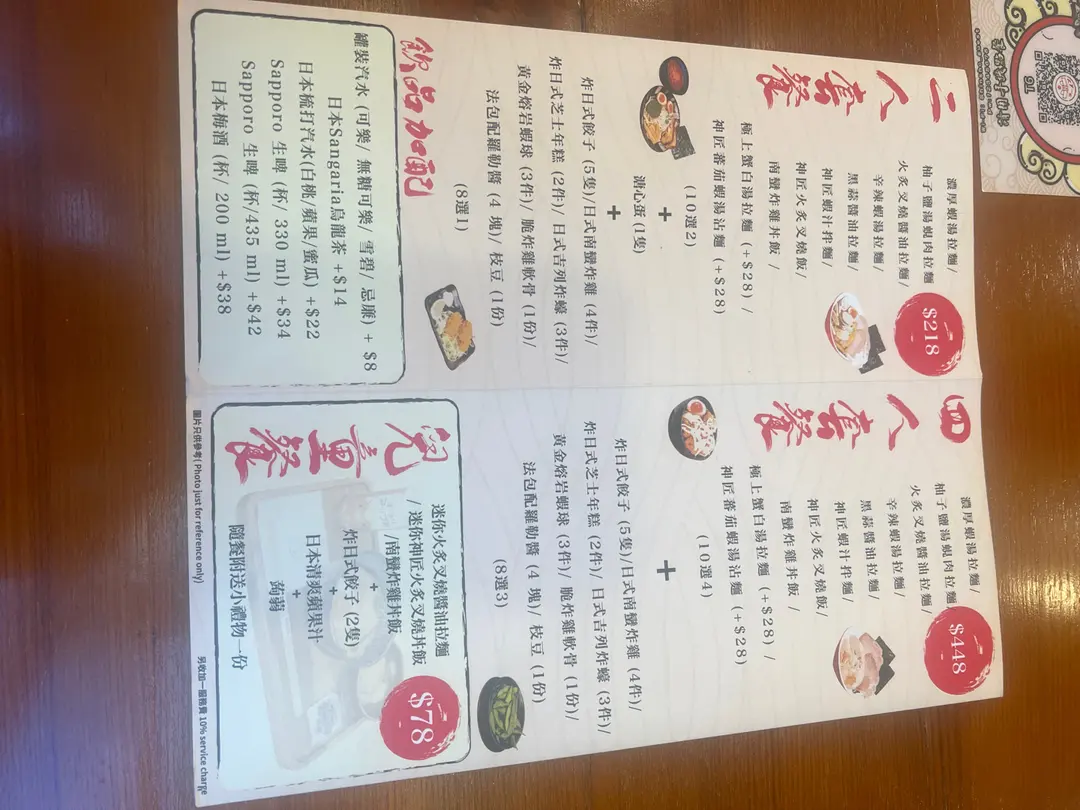 二人套餐
$218
濃厚蝦湯拉麵/
柚子鹽湯蜆肉拉麵
火炙叉燒醬油拉麵/
辛辣蝦湯拉麵/
黑蒜醬油拉麵/
神匠蝦汁拌麵/
神匠火炙叉燒飯/
南蠻炸雞丼飯 /
極上蟹白湯拉麵 (+$28) /
神匠蕃茄蝦湯沾麵 (+$28)
(10選2)
+
溏心蛋(1隻)
+
炸日式餃子 (5隻)/日式南蠻炸雞 (4件)/
炸日式芝士年糕 (2件)/ 日式吉列炸蠔 (3件)/
黃金熔岩蝦球 (3件)/ 脆炸雞軟骨 (1份)/
法包配羅勒醬 (4 塊)/ 枝豆 (1份)
(8選1)
飲品加配
罐裝汽水 (可樂/ 無糖可樂/ 雪碧/ 忌廉) + $8
日本Sangaria烏龍茶 +$14
日本梳打汽水(白桃/蘋果/蜜瓜) +$22
Sapporo 生啤 (杯/ 330 ml) +$34
Sapporo 生啤 (杯/435 ml) +$42
日本梅酒 (杯/ 200 ml) +$38
四人套餐
$448
濃厚蝦湯拉麵/
柚子鹽湯蜆肉拉麵
火炙叉燒醬油拉麵/
辛辣蝦湯拉麵/
黑蒜醬油拉麵/
神匠蝦汁拌麵/
神匠火炙叉燒飯/
南蠻炸雞丼飯 /
極上蟹白湯拉麵 (+$28) /
神匠蕃茄蝦湯沾麵 (+$28)
(10選4)
+
炸日式餃子 (5隻)/日式南蠻炸雞 (4件)/
炸日式芝士年糕 (2件)/ 日式吉列炸蠔 (3件)/
黃金熔岩蝦球 (3件)/ 脆炸雞軟骨 (1份)/
法包配羅勒醬 (4 塊)/ 枝豆 (1份)
(8選3)
兒童餐
$78
迷你火炙叉燒醬油拉麵
/ 迷你神匠火炙叉燒丼飯
/南蠻炸雞丼飯
+
炸日式餃子 (2隻)
+
日本清爽蘋果汁
+
蒟蒻
隨餐附送小禮物一份
圖片只供參考( Photo just for reference only)
另收加一服務費 10% service charge